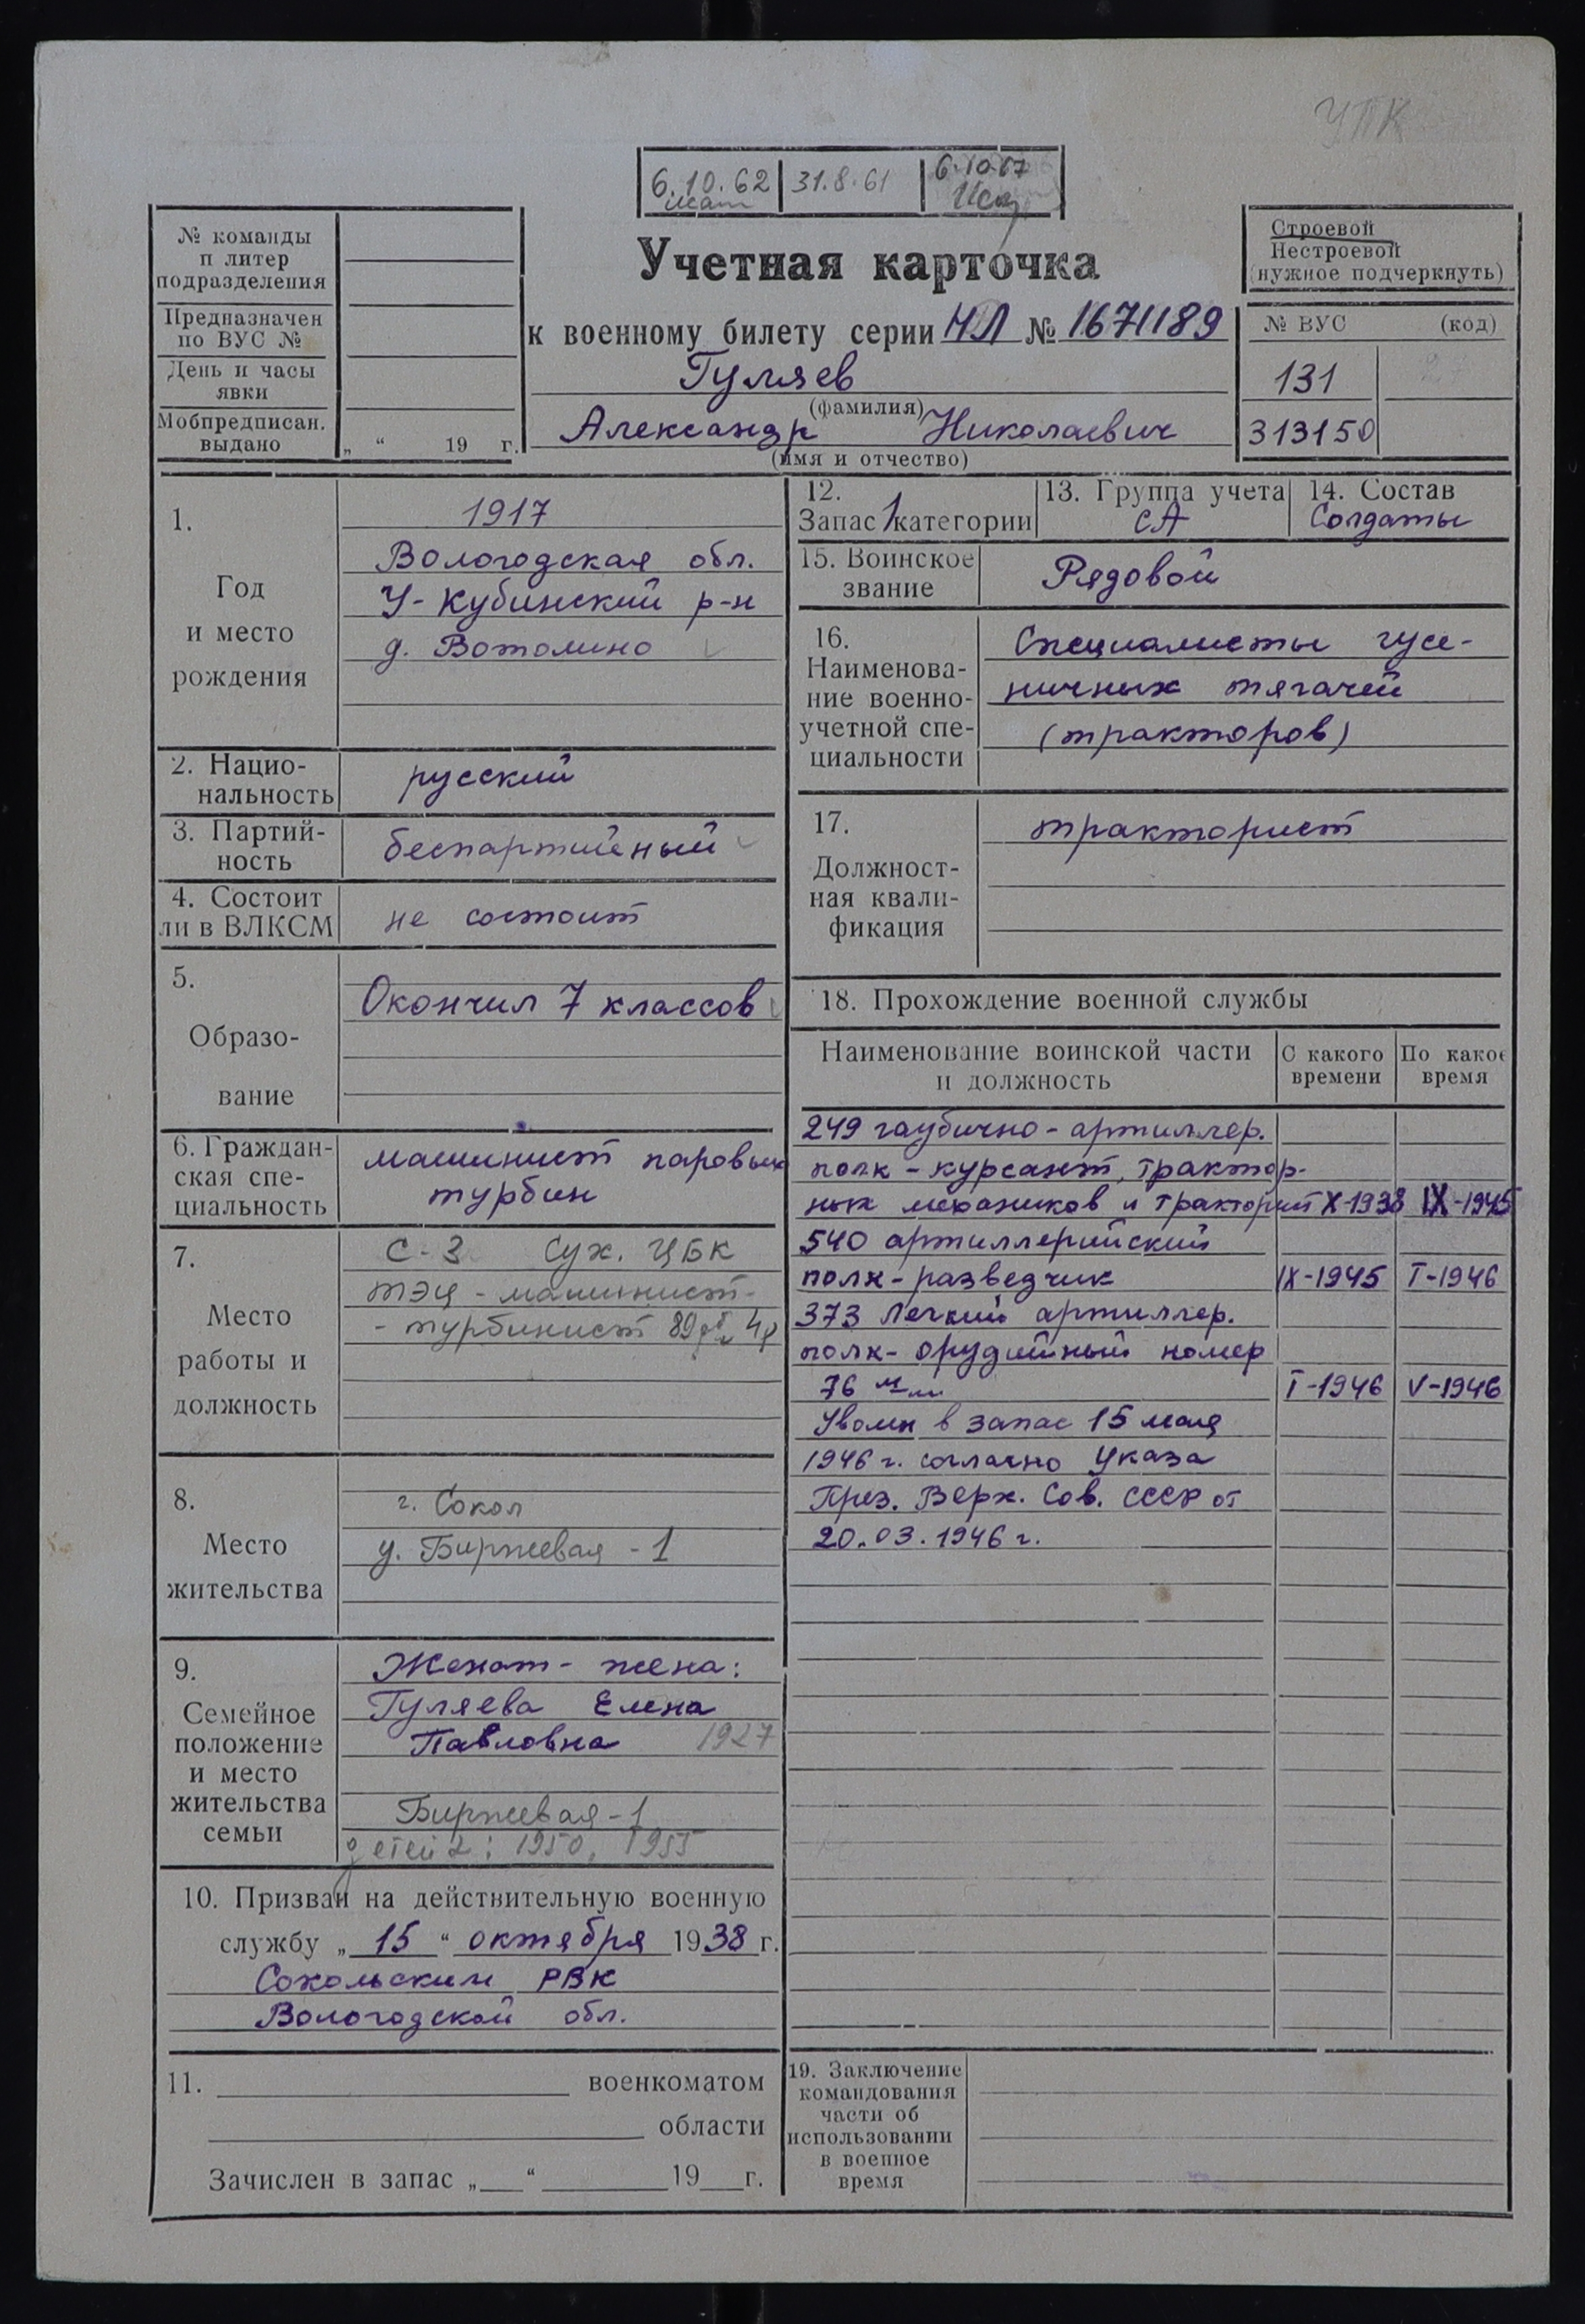 УПК
6.10.62 31.8.61 6.10.67
№ команды
п литер
подразделения
Предназначен
по ВУС №
День и часы
явки
Мобпредписан.
выдано „ “ 19 г.
Учетная карточка
к военному билету серии НЛ № 1671189
Гуляев
(фамилия)
Александр Николаевич
(имя и отчество)
Строевой
Нестроевой
(нужное подчеркнуть)
№ ВУС (код)
131
313150
1.
Год
и место
рождения
1917
Вологодская обл.
У-Кубинский р-н
д. Вотолино
2. Нацио-
нальность
русский
3. Партий-
ность
беспартийный
4. Состоит
ли в ВЛКСМ
не состоит
5.
Образо-
вание
Окончил 7 классов
6. Граждан-
ская спе-
циальность
машинист паровых
турбин
7.
Место
работы и
должность
С-З Сух. ЦБК
ТЭЦ - машинист-
- турбинист
8.
Место
жительства
г. Сокол
у. Биржевая - 1
9.
Семейное
положение
и место
жительства
семьи
Женат - жена:
Гуляева Елена
Павловна 1927
Биржевая - 1
детей 2: 1950, 1955
10. Призван на действительную военную
службу „ 15 “ октября 1938 г.
Сокольским РВК
Вологодской обл.
11. военкоматом
области
Зачислен в запас „ “ 19 г.
12.
Запас 1 категории
13. Группа учета
СА
14. Состав
Солдаты
15. Воинское
звание
Рядовой
16.
Наименова-
ние военно-
учетной спе-
циальности
Специалисты гусе-
ничных тягачей
(тракторов)
17.
Должност-
ная квали-
фикация
тракторист
18. Прохождение военной службы
Наименование воинской части
и должность
С какого
времени
По какое
время
249 гаубично-артиллер.
полк - курсант, трактор-
ных механиков и тракторист X-1938 IX-1945
540 артиллерийский
полк - разведчик IX-1945 I-1946
373 Легкий артиллер.
полк - орудийный номер
76 м/м I-1946 V-1946
Уволен в запас 15 мая
1946 г. согласно Указа
През. Верх. Сов. СССР от
20.03.1946 г.
19. Заключение
командования
части об
использовании
в военное
время